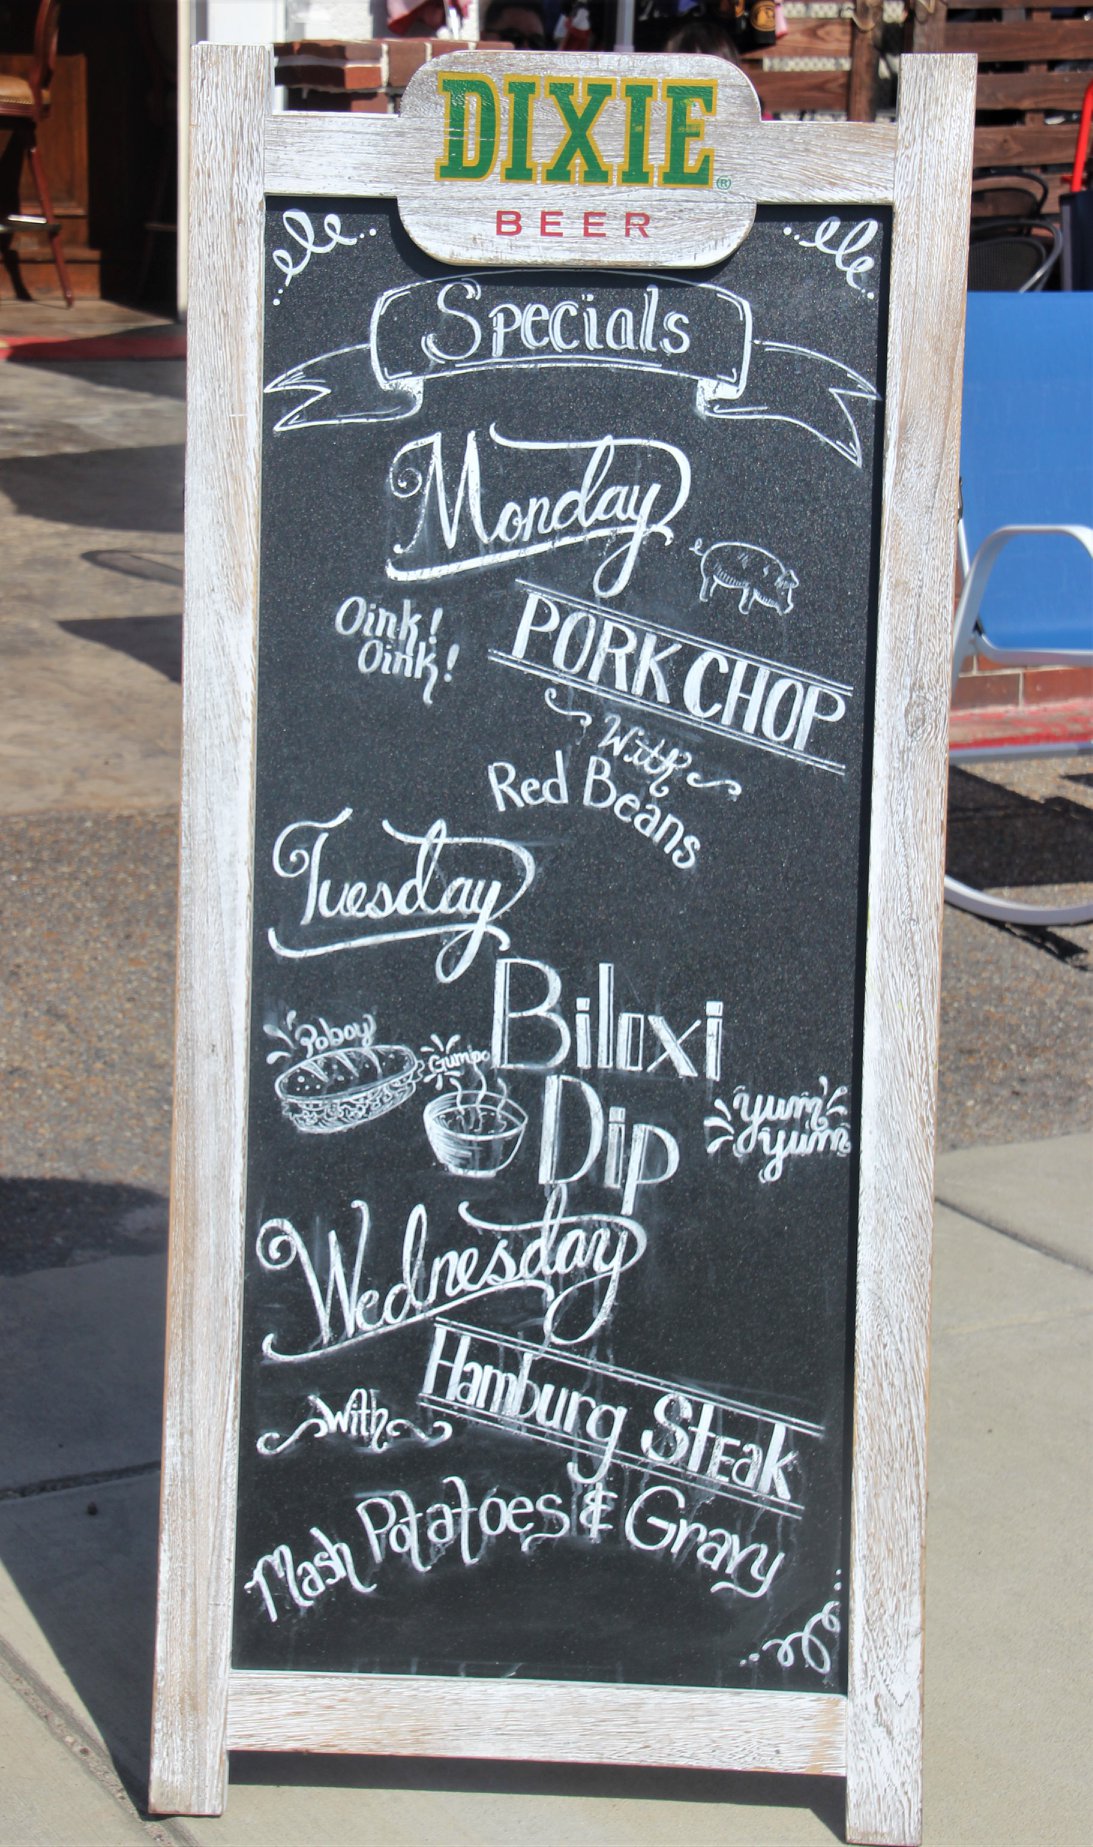 DIXIE®
BEER
Specials
Monday
Oink!
Oink!
PORK CHOP
With
Red Beans
Tuesday
Biloxi
Poboy
Gumbo
Dip
yum
yum
Wednesday
Hamburg Steak
With
Mash Potatoes & Gravy